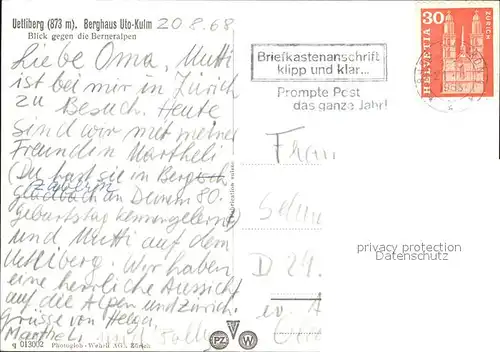 Uetliberg (873 m). Berghaus Uto-Kulm 20.8.68
Blick gegen die Berneralpen
Liebe Oma, Mutti
ist bei mir in Zürich
zu Besuch. Heute
sind wir mit meiner
Freundin Martheli
(Du hast sie in Berg
gladbach an Deinem 80.
Geburtstag kennengelernt)
und Mutti auf dem
Uetliberg. Wir haben
eine herrliche Aussicht
auf die Alpen und Zürich.
Grüsse von Helga
Martheli
q 013002 Photoglob-Wehrli AG., Zürich
Briefkastenanschrift
klipp und klar...
Prompte Post
das ganze Jahr!
HELVETIA
30
ZÜRICH
Frau
D 24
PZ
W
privacy protection
Datenschutz